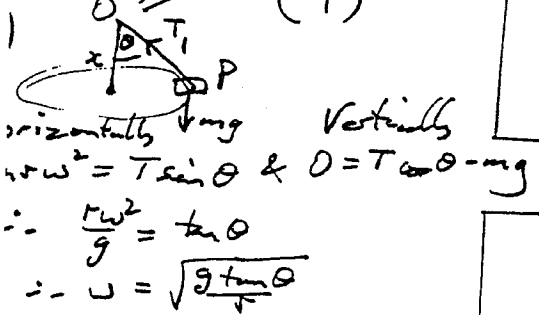 1) O (1)
θ T₁
x P
mg
orizontally Vertically
mrω² = T sin θ & 0 = T cos θ - mg
∴ rω²/g = tan θ
∴ ω = √(g tan θ / r)